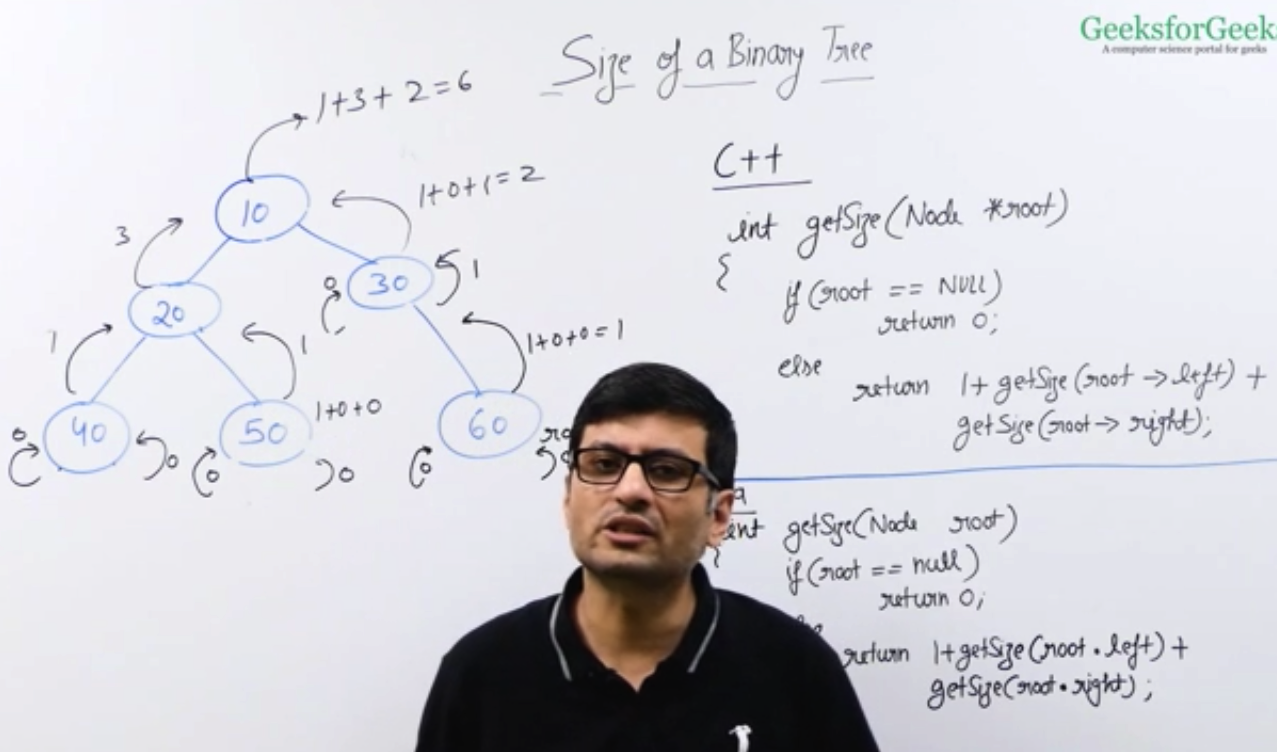 GeeksforGeeks
A computer science portal for geeks
Size of a Binary Tree
1+3+2=6
10
1+0+1=2
3
20
30
0
1
1
1
1+0+0=1
40
50
1+0+0
60
0
0
0
0
0
C++
int getSize(Node *root)
{
if(root == NULL)
return 0;
else
return 1+getSize(root->left)+
getSize(root->right);
int getSize(Node root)
{
if(root == null)
return 0;
return 1+getSize(root.left)+
getSize(root.right);